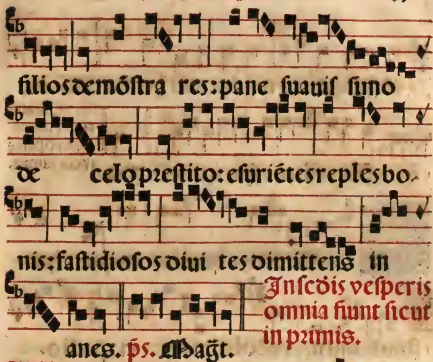 filios demõstra res: pane suauis simo
de celo prestito: esuriẽtes reples bo-
nis: fastidiosos diui tes dimittens in
anes. p̄s. Mag̃t.
In scḋis vesperis
omnia fiunt sicut
in primis.